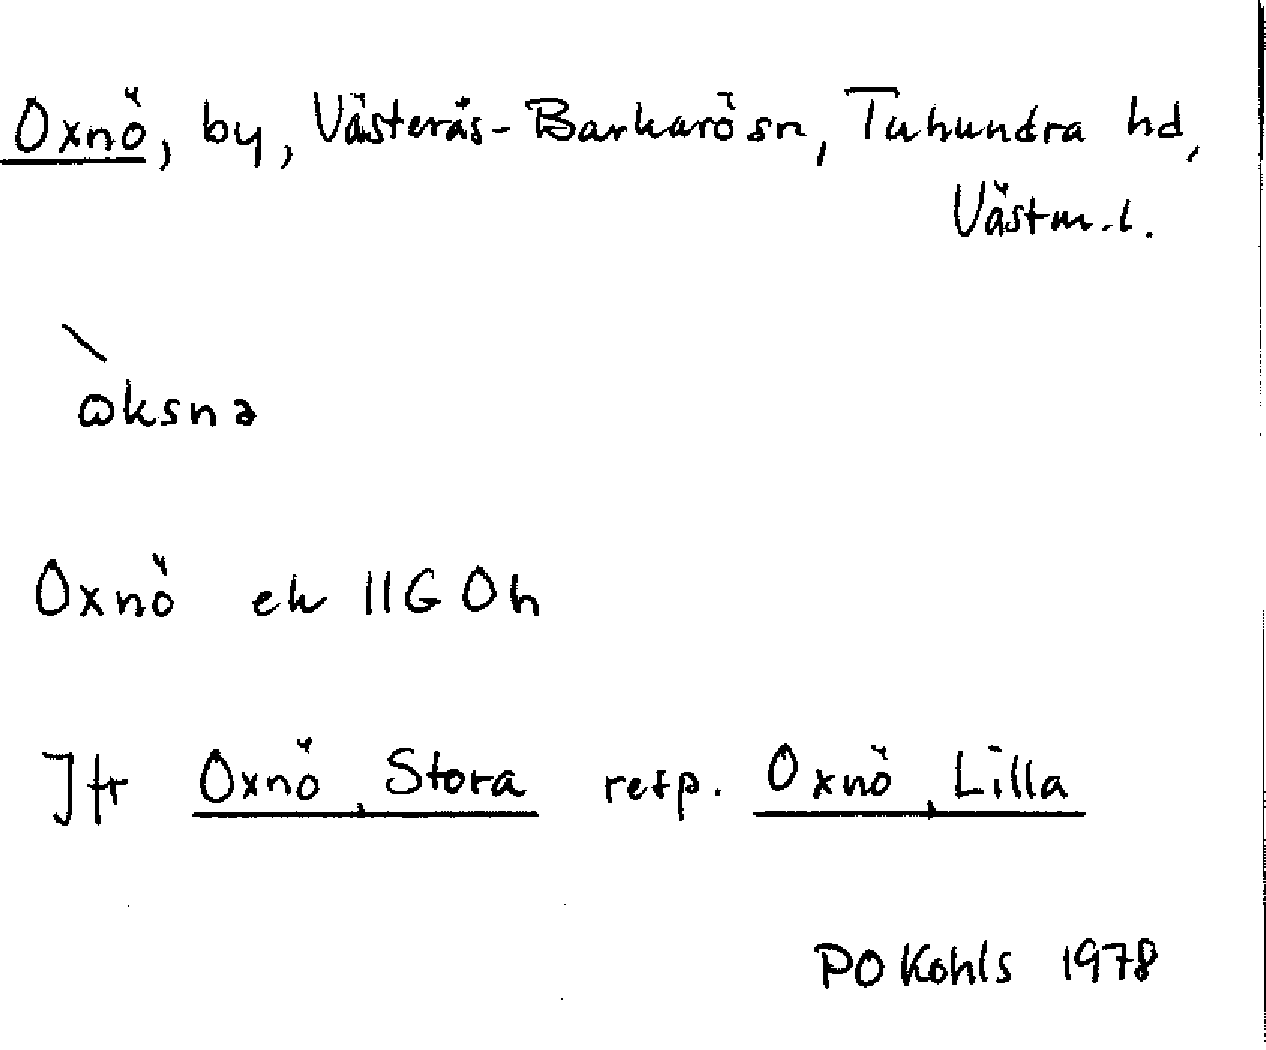 Oxnö, by, Västerås-Barkarö sn, Tuhundra hd,
Västm.l.
òksnə
Oxnö ek 11G 0h
Jfr Oxnö, Stora resp. Oxnö, Lilla
PO Kohls 1978